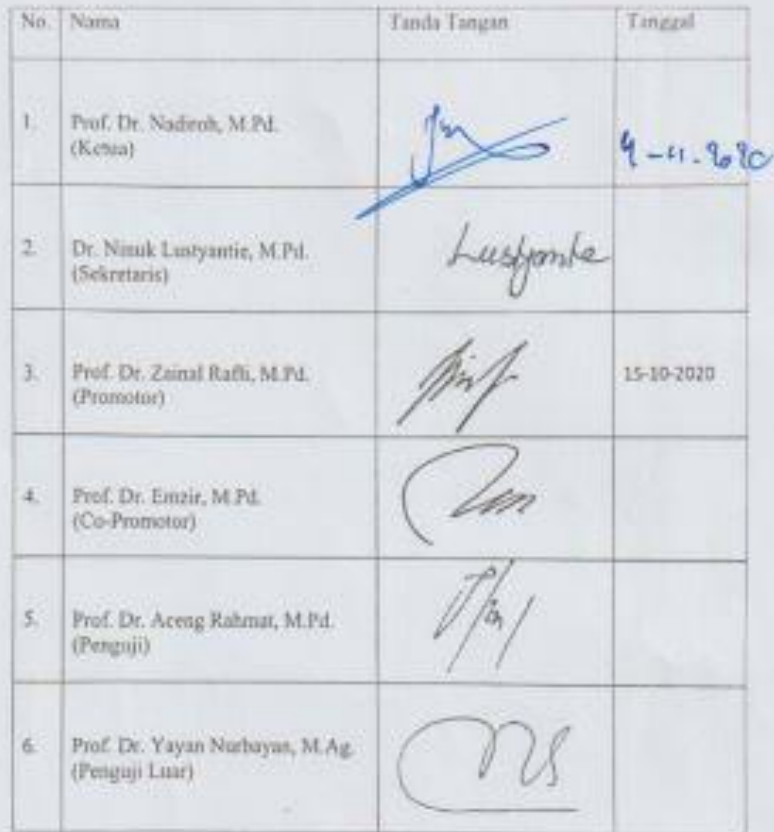 No. Nama Tanda Tangan Tanggal
1. Prof. Dr. Nadiroh, M.Pd.
(Ketua)
2. Dr. Ninuk Lustyantie, M.Pd.
(Sekretaris)
Lustyantie
3. Prof. Dr. Zainal Rafli, M.Pd. 15-10-2020
(Promotor)
4. Prof. Dr. Emzir, M.Pd.
(Co-Promotor)
5. Prof. Dr. Aceng Rahmat, M.Pd.
(Penguji)
6. Prof. Dr. Yayan Nurbayan, M.Ag.
(Penguji Luar)